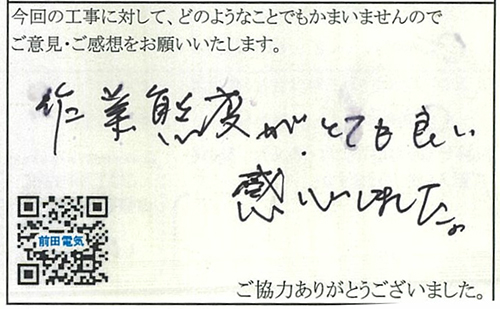 今回の工事に対して、どのようなことでもかまいませんので
ご意見・ご感想をお願いいたします。
作業態度がとても良い
感いしれた。
前田電気
ご協力ありがとうございました。